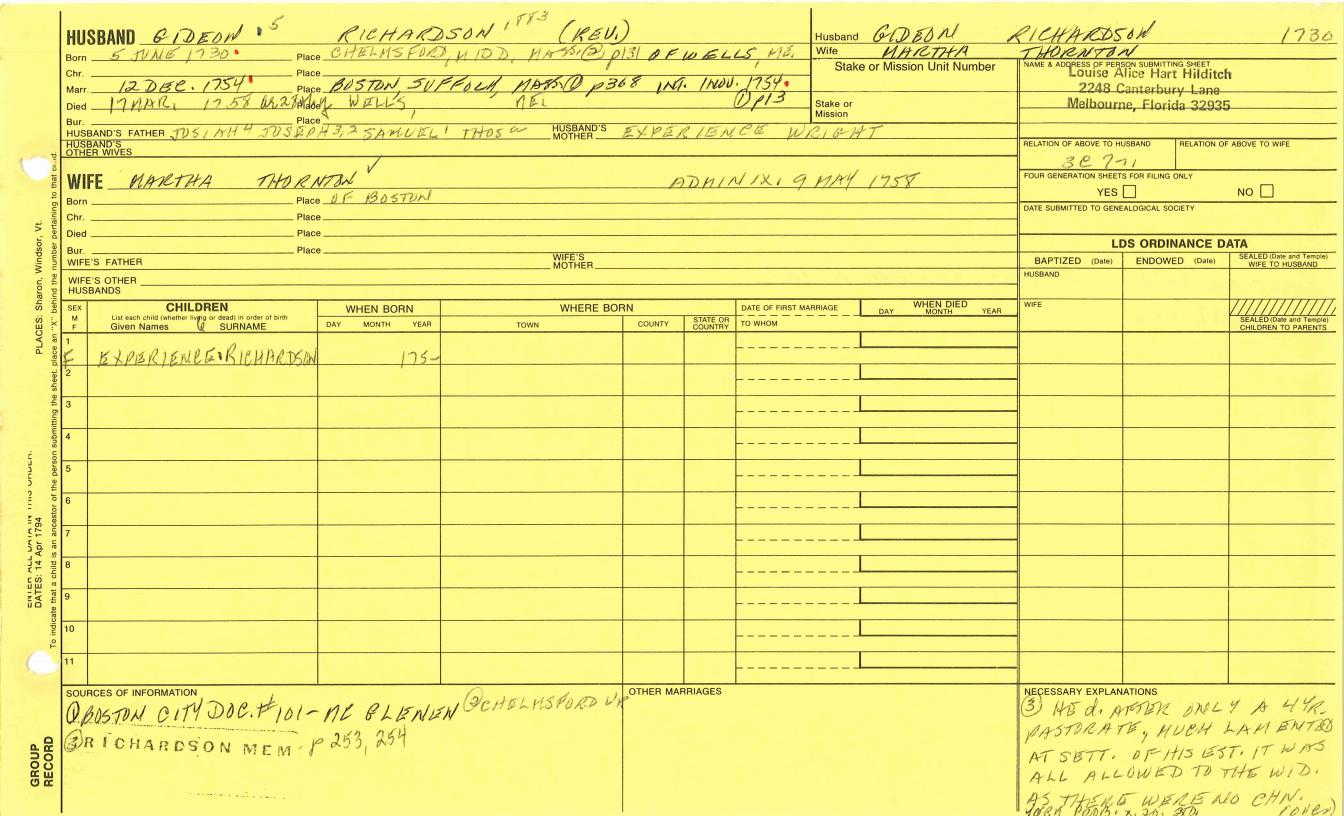 HUSBAND GIDEON 5 RICHARDSON 1883 (REV.)
Born 5 JUNE 1730 Place CHELMSFORD, MIDD, MASS. ② p131 OF WELLS, ME.
Chr. Place
Marr. 12 DEC. 1754 Place BOSTON, SUFFOLK, MASS ① p368 INT. 1 NOV. 1754
Died 17 MAR. 1758 Place WELLS, ① p13
Bur. Place
HUSBAND'S FATHER JOSIAH⁴ JOSEPH³,² SAMUEL¹ THOS HUSBAND'S MOTHER EXPERIENCE WRIGHT
HUSBAND'S OTHER WIVES
WIFE MARTHA THORNTON ✓ ADMINIX. 9 MAY 1758
Born Place OF BOSTON
Chr. Place
Died Place
Bur. Place
WIFE'S FATHER WIFE'S MOTHER
WIFE'S OTHER HUSBANDS
Husband GIDEON RICHARDSON 1730
Wife MARTHA THORNTON
Stake or Mission Unit Number
Stake or Mission
NAME & ADDRESS OF PERSON SUBMITTING SHEET
Louise Alice Hart Hilditch
2248 Canterbury Lane
Melbourne, Florida 32935
RELATION OF ABOVE TO HUSBAND RELATION OF ABOVE TO WIFE
3C 7r
FOUR GENERATION SHEETS FOR FILING ONLY
YES NO
DATE SUBMITTED TO GENEALOGICAL SOCIETY
LDS ORDINANCE DATA
BAPTIZED (Date) ENDOWED (Date) SEALED (Date and Temple) WIFE TO HUSBAND
HUSBAND
WIFE
SEALED (Date and Temple) CHILDREN TO PARENTS
SEX M F
CHILDREN
List each child (whether living or dead) in order of birth
Given Names SURNAME
WHEN BORN
DAY MONTH YEAR
WHERE BORN
TOWN COUNTY STATE OR COUNTRY
DATE OF FIRST MARRIAGE
TO WHOM
WHEN DIED
DAY MONTH YEAR
1
F EXPERIENCE RICHARDSON 175-
2
3
4
5
6
7
8
9
10
11
SOURCES OF INFORMATION
① BOSTON CITY DOC. #101 - MC GLENEN ② CHELMSFORD VR
③ RICHARDSON MEM - p 253, 254
OTHER MARRIAGES
NECESSARY EXPLANATIONS
③ HE d. AFTER ONLY A 4 YR.
PASTORATE, MUCH LAMENTED
AT SETT. OF HIS EST. IT WAS
ALL ALLOWED TO THE WID.
AS THERE WERE NO CHN.
(over)
PLACES: Sharon, Windsor, Vt.
ENTER ALL DATA IN THIS ORDER:
DATES: 14 Apr 1794
To indicate that a child is an ancestor of the person submitting the sheet, place an "X" behind the number pertaining to that
GROUP RECORD